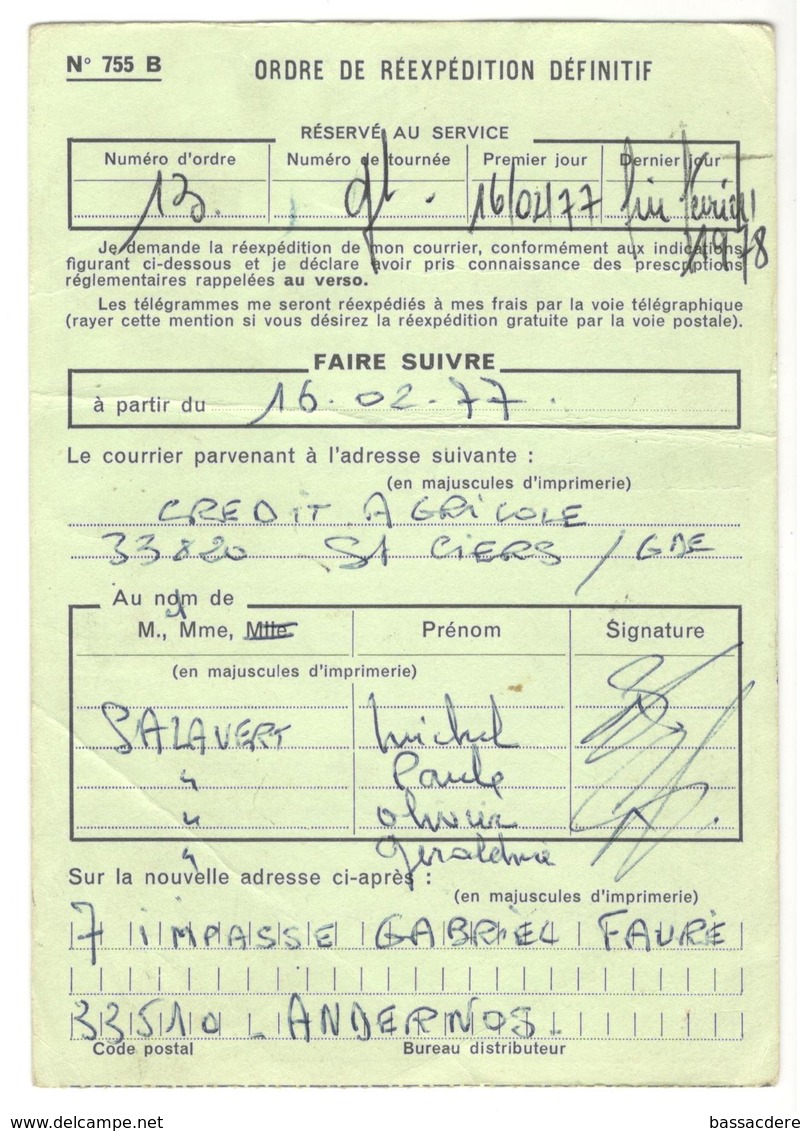 N° 755 B
ORDRE DE RÉEXPÉDITION DÉFINITIF
RÉSERVÉ AU SERVICE
Numéro d'ordre Numéro de tournée Premier jour Dernier jour
13. 16/02/77 fin février
1978
Je demande la réexpédition de mon courrier, conformément aux indications
figurant ci-dessous et je déclare avoir pris connaissance des prescriptions
réglementaires rappelées au verso.
Les télégrammes me seront réexpédiés à mes frais par la voie télégraphique
(rayer cette mention si vous désirez la réexpédition gratuite par la voie postale).
FAIRE SUIVRE
à partir du 16.02.77.
Le courrier parvenant à l'adresse suivante :
(en majuscules d'imprimerie)
CREDIT AGRICOLE
33820 St CIERS / GDE
Au nom de
M., Mme, Mlle Prénom Signature
(en majuscules d'imprimerie)
SALAVERT Michel
" Paule
" Olivier
" Géraldine
Sur la nouvelle adresse ci-après :
(en majuscules d'imprimerie)
7 IMPASSE GABRIEL FAURE
33510 - ANDERNOS.
Code postal Bureau distributeur
delcampe.net bassacdere